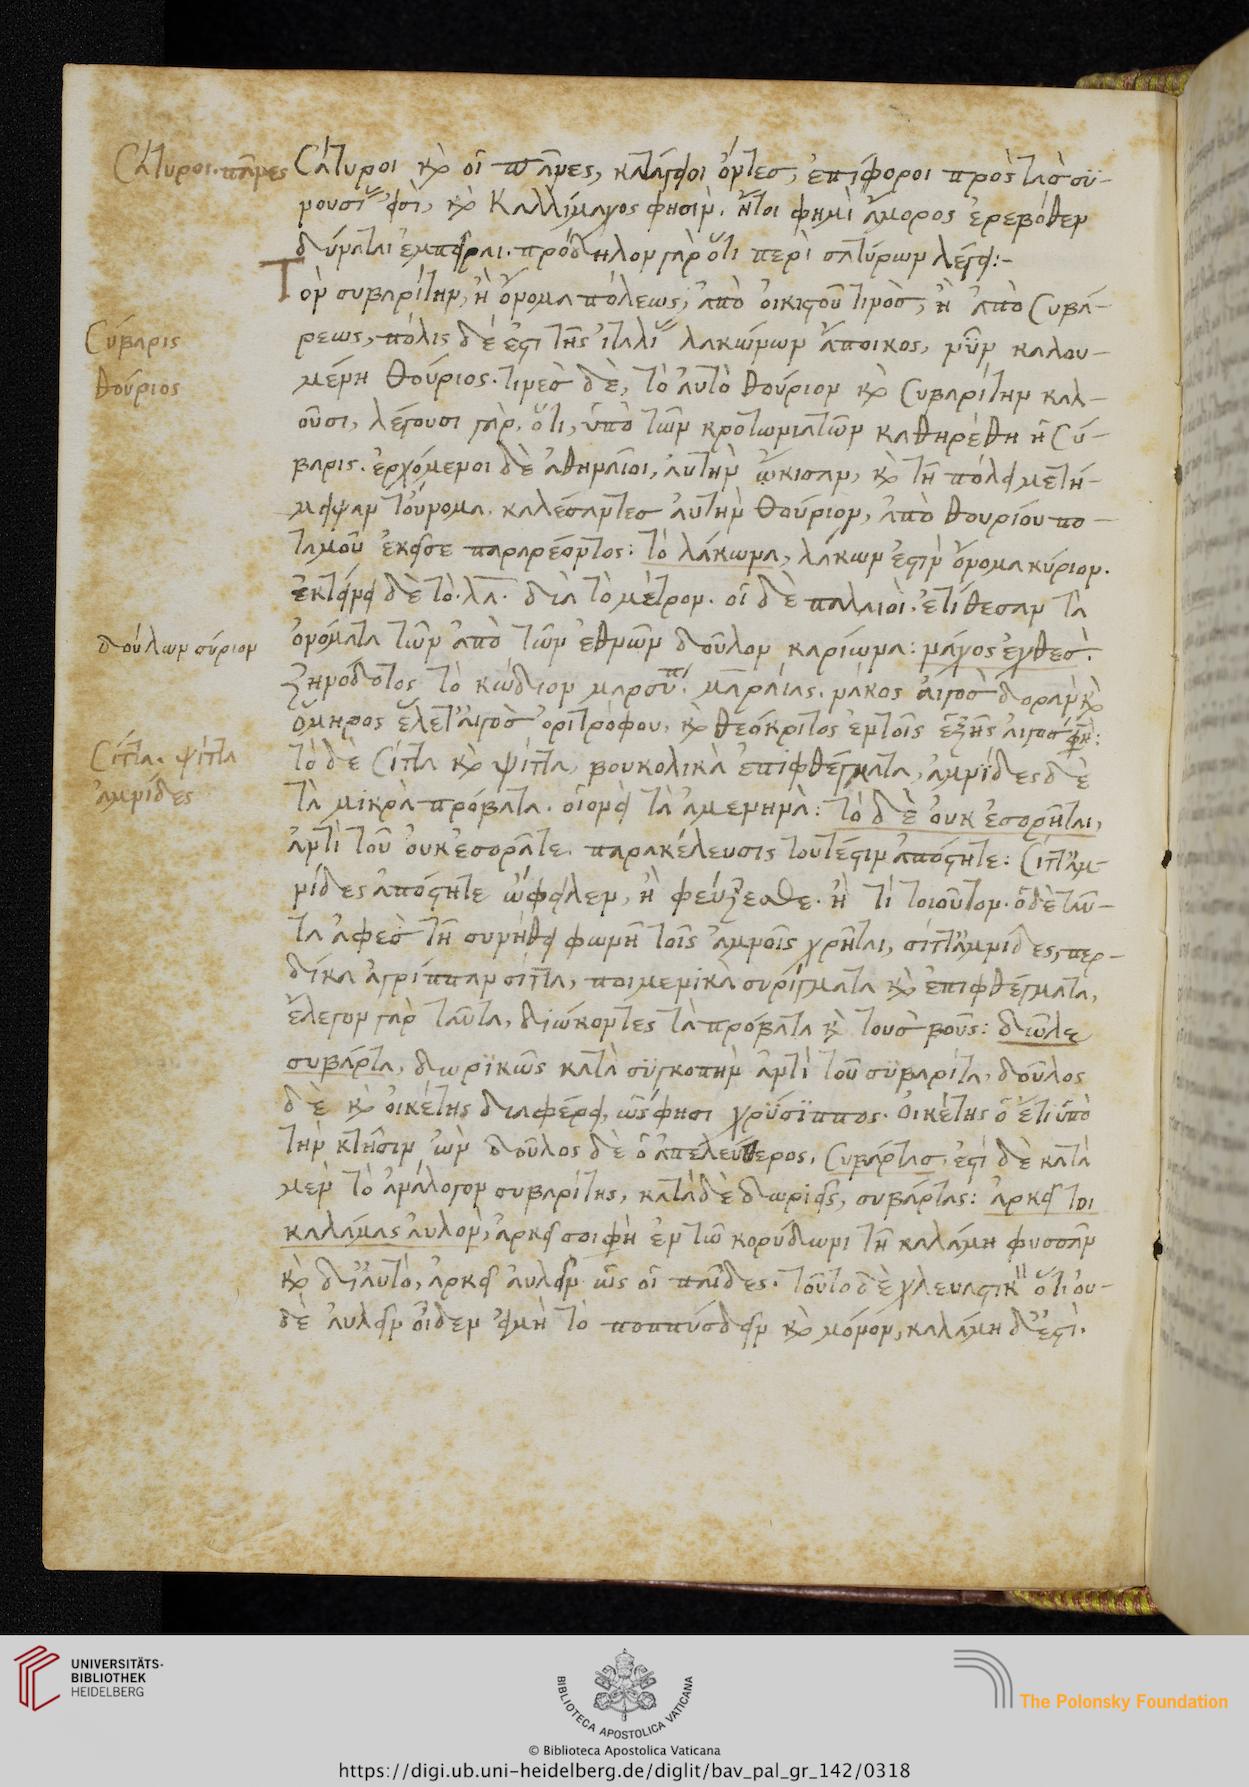 Σάτυροι. πᾶνες
Σάτυροι κ̀ οἱ πᾶνες, κατάγφοι ὄντες, ἐπίφοροι πρὸς τὰς συ-
νουσί εἰσὶ, κ̀ Καλλίμαχος φησὶν. ἤτοι φημὶ ἄμορος ἐρεβόθεν
δύναται πρόδηλον γὰρ ὅτι περὶ σατύρων λέγει:-
Τὸν συβαρίτην, ἢ ὄνομα πόλεως, ἀπὸ οἰκιστοῦ τινὸς, ἢ ἀπὸ Συβά-
Σύβαρις
ρεως, πόλις δέ ἐστι τῆς ἰταλί λακώνων ἄποικος, νῦν καλου-
θούριος
μένη θούριος. τινὲς δὲ, τὸ αὐτὸ θούριον κ̀ Συβαρίτην καλ-
οῦσι, λέγουσι γὰρ, ὅτι, ὑπὸ τῶν κροτωνιατῶν καθηρέθη ἡ Σύ-
βαρις. ἐρχόμενοι δὲ ἀθηναῖοι, αὐτὴν ᾤκισαν, κ̀ τῇ πόλει μετή-
μειψαν τοὔνομα. καλέσαντες αὐτὴν θούριον, ἀπὸ θουρίου πο-
ταμοῦ ἐκεῖσε παραρέοντος: τὸ λάκωνα, λάκων ἐστὶν ὄνομα κύριον.
ἐκτείνει δὲ τὸ. λα. διὰ τὸ μέτρον. οἱ δὲ παλαιοὶ ἐτίθεσαν τὰ
δούλων σύριον
ὀνόματα τῶν ἀπὸ τῶν ἐθνῶν δοῦλον καρίωνα: νάκος ἐχθές.
Ζηνόδοτος τὸ κώδιον μαρσύπ μαραίας. νάκος αἰγὸς δορὰν κ̀
ὅμηρος ἕλετ' αἰγὸς ὀριτρόφου, κ̀ θεόκριτος ἐν τοῖς ἑξῆς αἰγοσ
Σίττα. ψίττα
τὸ δὲ Σίττα κ̀ ψίττα, βουκολικὰ ἐπιφθέγματα, ἀμνίδες δὲ
ἀμνίδες
τὰ μικρὰ πρόβατα. οἱονεὶ τὰ ἀμενηνὰ: τὸ δὲ οὐκ ἐσορῆται,
ἀντὶ τοῦ οὐκ ἐσορᾶτε. παρακέλευσις τουτέστιν ἀπόστητε: Σίττ' ἀμ-
νίδες ἀπόστητε ὤφειλεν, ἢ φεύξεσθε. ἢ τί τοιοῦτον. ὁ δὲ ταῦ-
τα ἀφεὶς τῇ συνήθει φωνῇ τοῖς ἀμνοῖς χρῆται, σίττ' ἀμνίδες, περ-
δίκα ἀγρίππαν σίττα, ποιμενικὰ συρίγματα κ̀ ἐπιφθέγματα,
ἔλεγον γὰρ ταῦτα, διώκοντες τὰ πρόβατα κ̀ τοὺς βοῦς: δῶλε
συβάρτα, δωρϊκῶς κατὰ συγκοπὴν ἀντὶ τοῦ συβαρίτα, δοῦλος
δὲ κ̀ οἰκέτης διαφέρει, ὥς φησι χρύσϊππος. οἰκέτης ὁ ἔτι ὑπὸ
τὴν κτῆσιν ὢν δοῦλος δὲ ὁ ἀπελεύθερος, Συβάρτας ἐστὶ δὲ κατὰ
μὲν τὸ ἀνάλογον συβαρίτης, κατὰ δὲ δωριεῖς, συβάρτας: ἀρκεῖ τοι
καλάμας αὐλὸν, ἀρκεῖ σοι φὴ ἐν τῷ κορύδωνι τῇ καλάμῃ φυσσᾶν
κ̀ δι' αὐτὸ, ἀρκεῖ αὐλεῖν ὡς οἱ παῖδες. τοῦτο δὲ χλευαστικ ὅτι οὐ-
δὲ αὐλεῖν οἶδεν εἰ μὴ τὸ ποππύσδειν κ̀ μόνον, καλάμη δ' ἐστὶ.
UNIVERSITÄTS-
BIBLIOTHEK
HEIDELBERG
BIBLIOTECA APOSTOLICA VATICANA
The Polonsky Foundation
© Biblioteca Apostolica Vaticana
https://digi.ub.uni-heidelberg.de/diglit/bav_pal_gr_142/0318